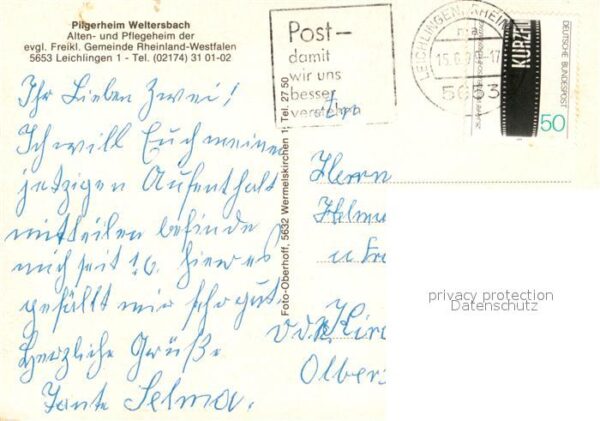 Pilgerheim Weltersbach
Alten- und Pflegeheim der
evgl. Freikl. Gemeinde Rheinland-Westfalen
5653 Leichlingen 1 - Tel. (02174) 31 01-02
Ihr Lieben Zwei!
Ich will Euch meinen
jetzigen Aufenthalt
mitteilen befinde
mich seit 1.6. hier es
gefällt mir sehr gut.
Herzliche Grüße
Tante Selma.
Foto-Oberhoff, 5632 Wermelskirchen 1, Tel. 27 50
Post-
damit
wir uns
besser
verstehen
LEICHLINGEN, RHEINL
5653
KURZFI
DEUTSCHE BUNDESPOST
50
Herrn
u Fr
Olber
privacy protection
Datenschutz